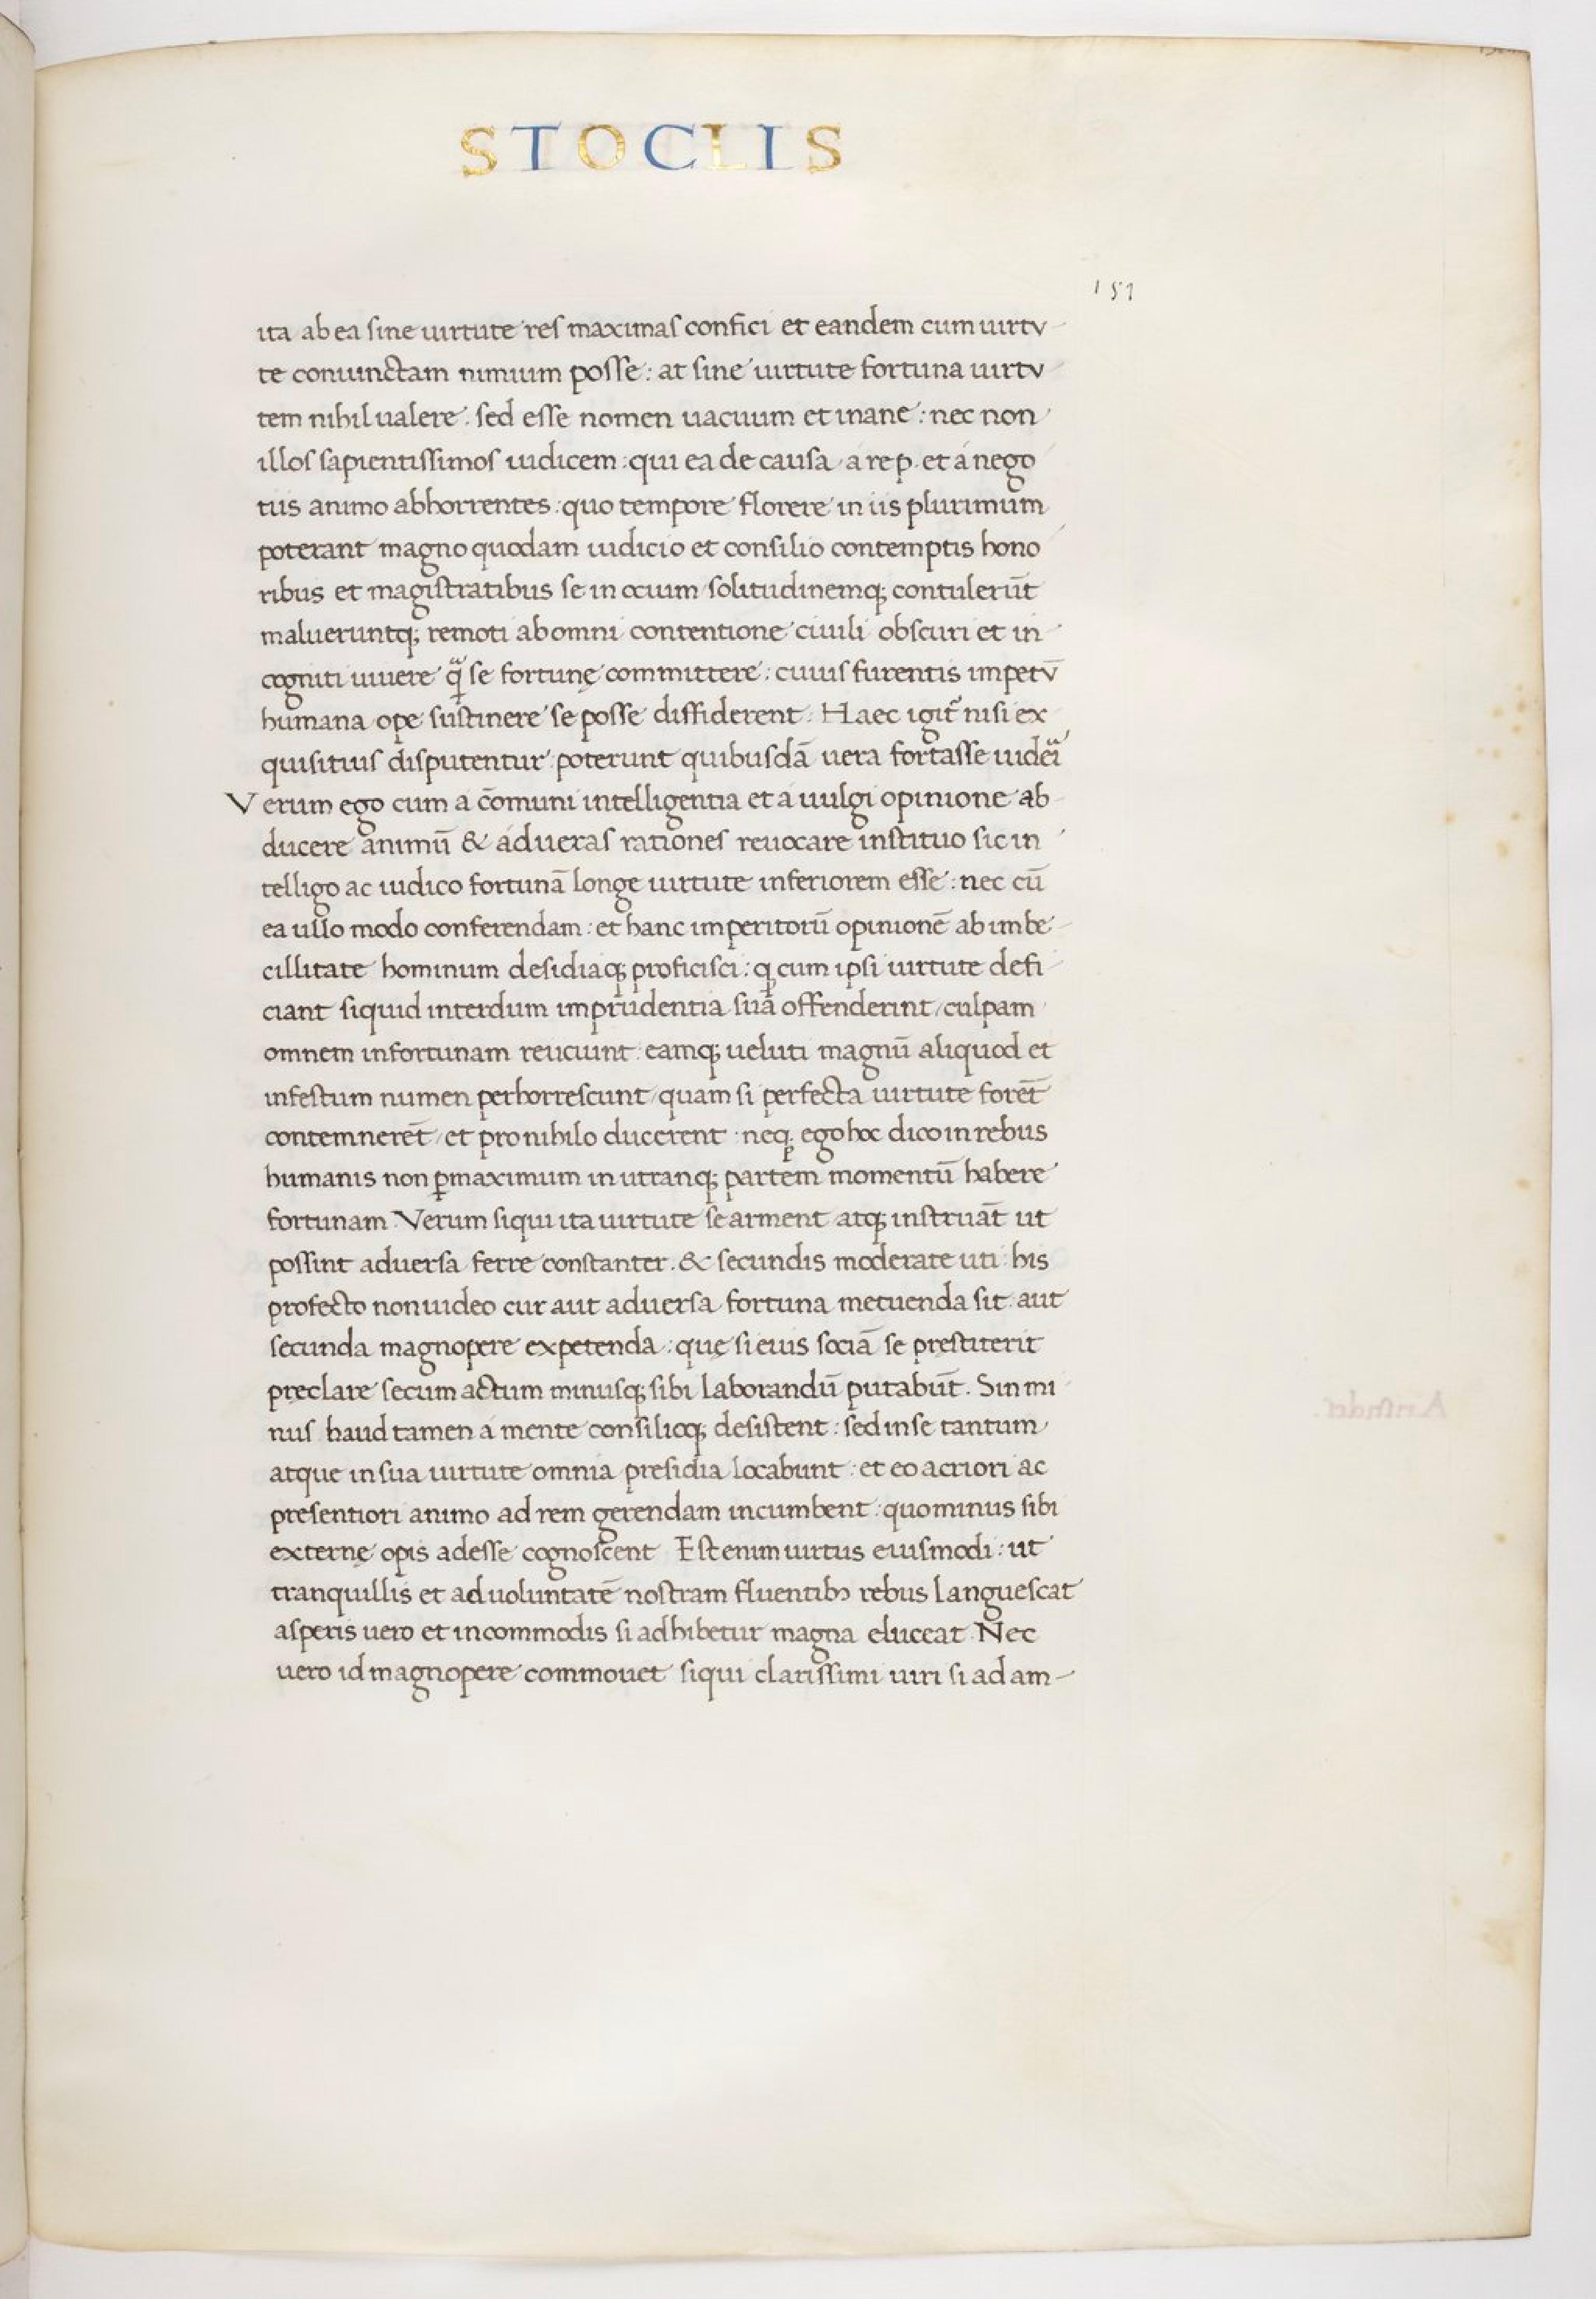 STOCLIS
151
ita ab ea sine uirtute res maximas confici et eandem cum uirtv-
te coniunctam nimium posse: at sine uirtute fortuna uirtv
tem nihil ualere: sed esse nomen uacuum et inane: nec non
illos sapientissimos iudicem: qui ea de causa a re p. et a nego
tiis animo abhorrentes: quo tempore florere in iis plurimum
poterant magno quodam iudicio et consilio contemptis hono
ribus et magistratibus se in ocium solitudinemq; contulerūt
malueruntq; remoti ab omni contentione ciuili obscuri et in-
cogniti uiuere q̃ se fortunę committere: cuius furentis impetv̄
humana ope sustinere se posse diffiderent: Haec igit᷑ nisi ex
quisitius disputentur poterunt quibusdā uera fortasse uideri
Verum ego cum a cōmuni intelligentia et a uulgi opinione ab-
ducere animū & ad ueras rationes reuocare instituo sic in
telligo ac iudico fortunā longe uirtute inferiorem esse: nec cū
ea ullo modo conferendam: et hanc imperitorū opinionē ab imbe-
cillitate hominum desidiaq; proficisci: q cum ipsi uirtute defi-
ciant siquid interdum imprudentia sua offenderint / culpam
omnem in fortunam reiiciunt: eamq; ueluti magnū aliquod et
infestum numen perhorrescunt / quam si perfecta uirtute forēt
contemnerēt / et pro nihilo ducerent: neq; ego hoc dico in rebus
humanis non ꝑmaximum in utranq; partem momentū habere
fortunam. Verum siqui ita uirtute se arment atq; instruāt ut
possint aduersa ferre constanter. & secundis moderate uti: his
profecto non uideo cur aut aduersa fortuna metuenda sit: aut
secunda magnopere expetenda: quę si eius sociā se pręstiterit
pręclare secum actum minusq; sibi laborandū putabūt. Sin mi
nus haud tamen a mente consilioq; desistent: sed in se tantum
atque in sua uirtute omnia presidia locabunt: et eo acriori ac
presentiori animo ad rem gerendam incumbent: quo minus sibi
externę opis adesse cognoscent Est enim uirtus eiusmodi: ut
tranquillis et ad uoluntatē nostram fluentibꝰ rebus languescat
asperis uero et incommodis si adhibetur magna eluceat. Nec
uero id magnopere commouet siqui clarissimi uiri si ad am-